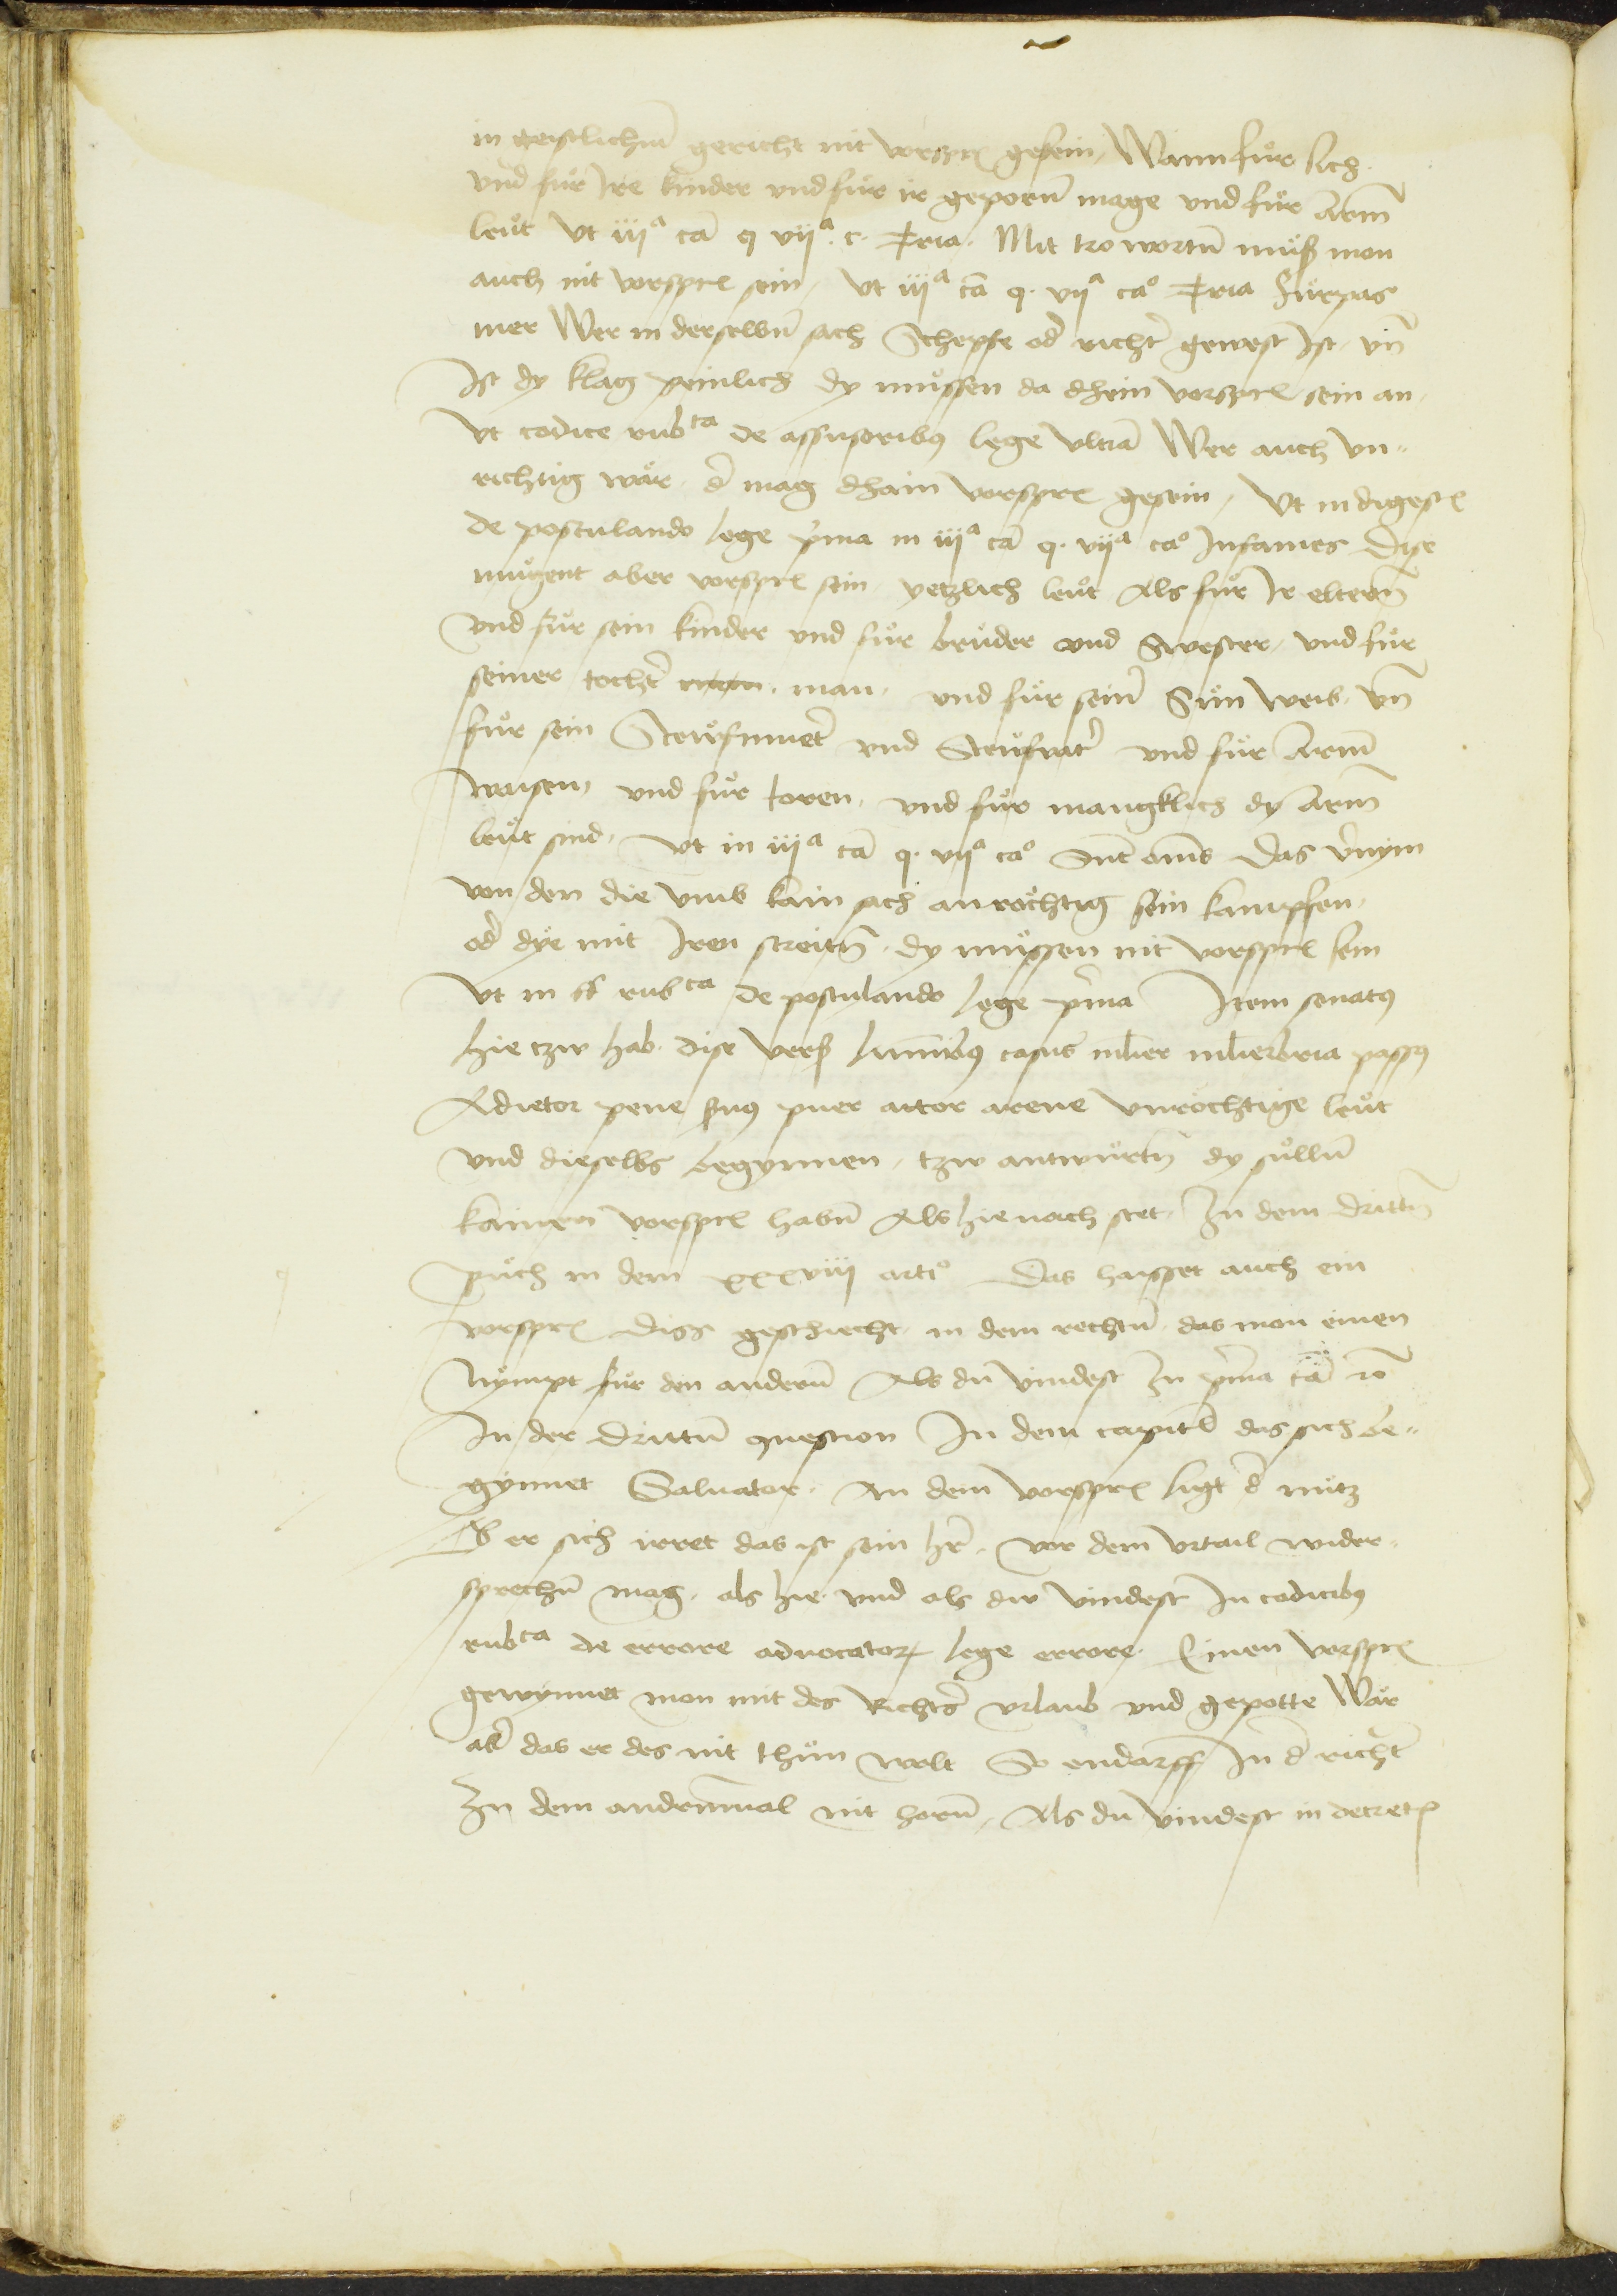 in geistlichem̄ gericht nit vorspꝛ gesein, Wann fuͤr sich
vnd fuͤr Ire kinder vnd fuͤr ir geporn̄ mage vnd fuͤr Arm̄
leuͤt vt iijᵃ cā q vijᵃ. c. Tria. Mit tro wortn̄ muͤß mon
auch nit vorspꝛ sein, vt iijᵃ cā q. vijᵃ caᵒ Tria Fuͤrpas
mer Wer in derselbn̄ sach Schepfe od̛ richt̛ gewest Ist, vn̄
Ist dy klag peinlich dy muͤssen da dhein vorspꝛ sein an,
Vt codice rubᶜᵃ de assesoribꝰ lege vltiā Wer auch vn„
richtig waͤr d̛ mag dhain vorspꝛ gesein, Vt in digestꝭ
de postulando lege p̛ma in iijᵃ cā q. vijᵃ caᵒ Infames Dise
muͤgent aber vorspꝛ sein, yetzlich leuͤt Als fuͤr Ir eltern̄
vnd fuͤr sein kinder vnd fuͤr bruͤder vnd Swester, vnd fuͤr
seiner tocht̛ man, vnd fuͤr sein̄ Suͤn weib, vn̄
fuͤr sein Steuͤfmuet̛ vnd Steuͤfvat̛ vnd fuͤr Arm̄
waisen, vnd fuͤr toren, vnd fuͤr mangklich dy Arm̄
leuͤt sind, vt in iijᵃ cā q. vijᵃ caᵒ Sūt om̄s Das v̛nym
von den die vmb kain sach anroͤchtig sein kempfen,
od̛ dye mit Iren streitn̄, dy muͤssen nit vorspꝛ sein
Vt in ff rubᶜᵃ de postulando lege p̛ma Item senatꝰ
hie tzw hab dise verß lumībꝰ casus ml̄ier ml̄ierbria passꝰ
Adictor pene s̄uꝰ puer actor arene Vnroͤchtige leuͤt
vnd dieselbs begynnen, tzw antwuͤrtn̄ dy suͤlln̄
kainen vorspꝛ habn̄ Als hie nach stet, In dem dritten̄
puͤch in dem xxxviij artiᵒ Das haisset auch ein
vorspꝛ Diss geschiecht in dem rechtn̄ das mon einen
Nympt fuͤr den andern̄ Als du vindest In p̛ma cā
In der drittn̄ question In dem capitl̄ das sich be„
gynnet Saluator. An dem vorspꝛ ligt d̛ nutz
D er sich irret das ist sein hr̄, vor dem vrtail wider„
sprechn̄ mag, als hie, vnd als dw vindest In codicibꝰ
rubᶜᵃ de errore aduocatoꝝ lege errore. Einen vorspꝛ
gewynnet mon mit des Richt̛s vrlaub vnd gepotte Waͤr
ab̛ das er des nit thuͤn wolt So endarff In d̛ richt̛
Zu dem andernmal nit horn̄, Als du vindest in decretꝭ